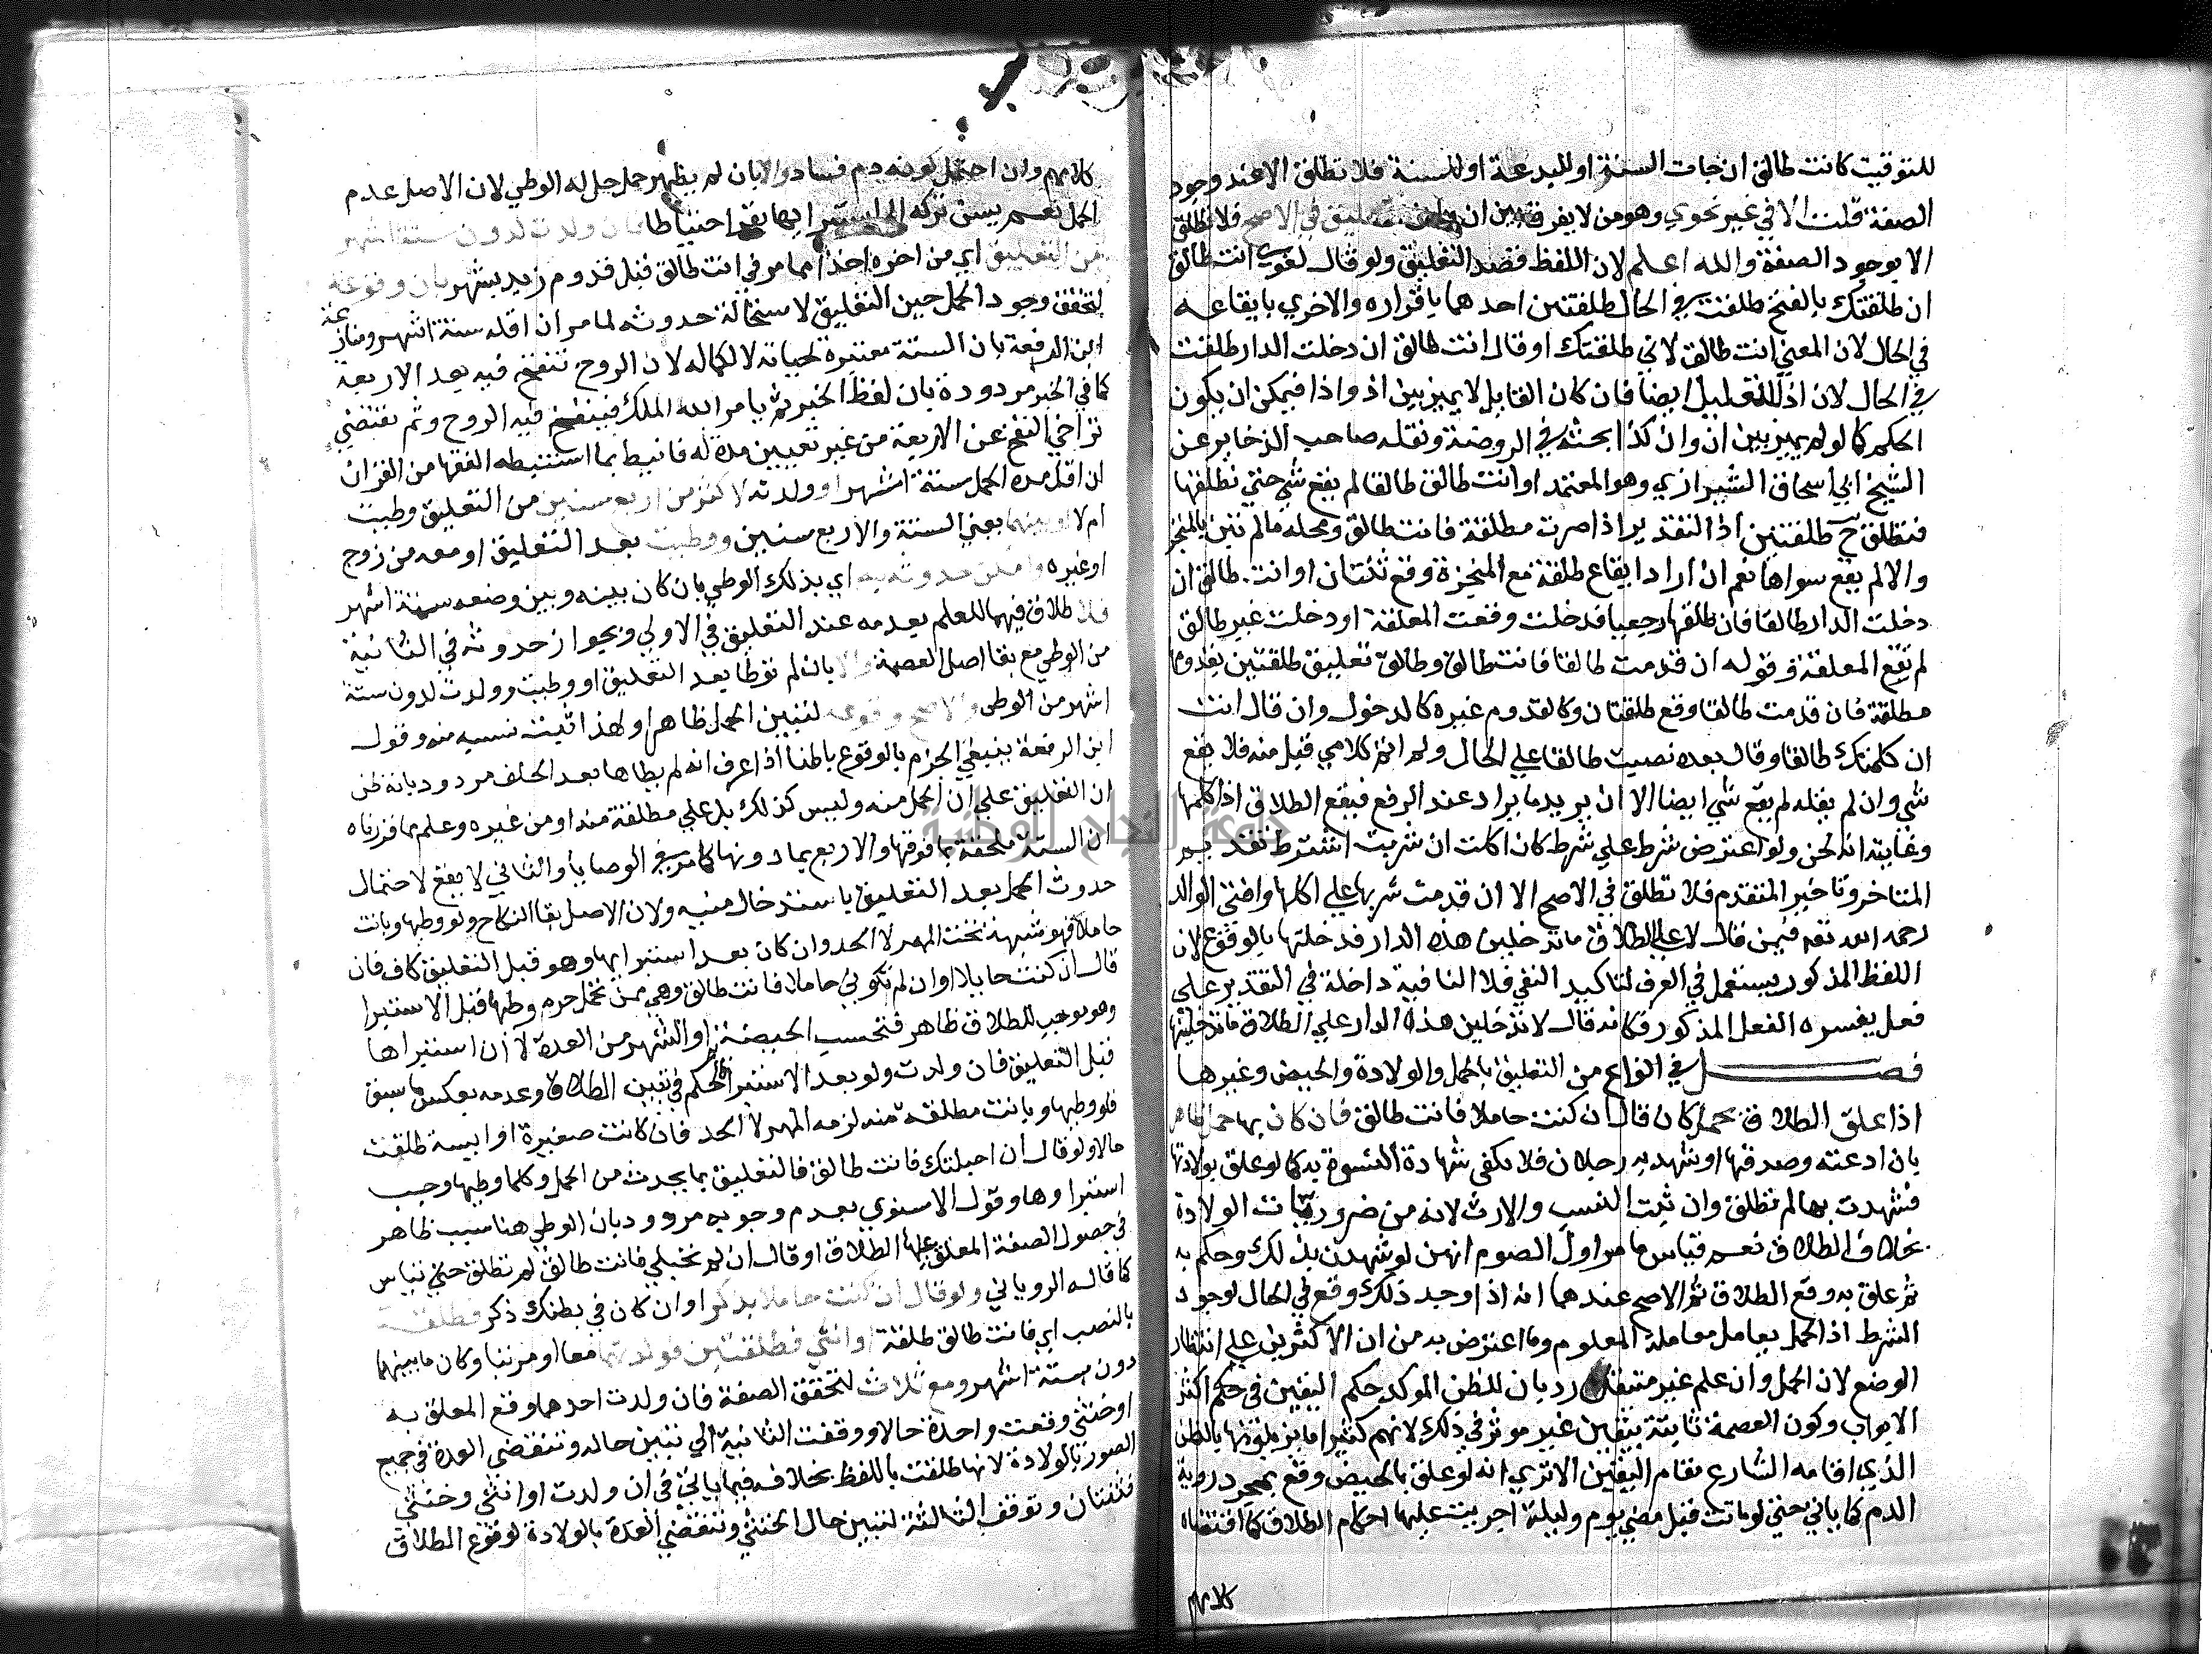 للتوقيت كانت طالق ان جات السنة او للبدعة او للسنة فلا تطلق الا عند وجود
الصفة قلت الا في غير نحوي وهو من لا يفرق بين ان وان فتعليق في الاصح فلا تطلق
الا بوجود الصفة والله اعلم لان اللفظ قصد التعليق ولو قال لغوي انت طالق
ان طلقتك بالفتح طلقت في الحال طلقتين احدهما باقراره والاخري بايقاعه
في الحال لان المعني انت طالق لاني طلقتك او قال انت طالق اذ دخلت الدار طلقت
في الحال لان اذ للتعليل ايضا فان كان القايل لا يميز بين اذ واذا فيمكن ان يكون
الحكم كما لو لم يميز بين ان وان كذا بحثه في الروضة ونقله صاحب الذخاير عن
الشيخ ابي اسحاق الشيرازي وهو المعتمد او انت طالق طالقا لم يقع شي حتي يطلقها
فتطلق ح طلقتين اذ التقدير اذا صرت مطلقة فانت طالق ومحله ما لم تبن بالمنجز
والا لم يقع سواها نعم ان اراد ايقاع طلقة مع المنجزة وقع ثنتان او انت طالق ان
دخلت الدار طالقا فان طلقها رجعيا فدخلت وقعت المعلقة او دخلت غير طالق
لم تقع المعلقة وقوله ان قدمت طالقا فانت طالق وطالق تعليق طلقتين بقدومها
مطلقة فان قدمت طالقا وقع طلقتان وكالقدوم غيره كالدخول وان قال انت
ان كلمتك طالقا وقال بعده نصبت طالقا علي الحال ولم اتم كلامي قبل منه فلا يقع
شي وان لم يقله لم يقع شي ايضا الا ان يريد ما يراد عند الرفع فيقع الطلاق اذا كلمها
وغايته انه لحن ولو اعترض شرط علي شرط كان اكلت ان شربت اشترط تقديم
المتاخر وتاخير المتقدم فلا تطلق في الاصح الا ان قدمت شربها علي اكلها وافتي الوالد
رحمه الله تعه فيمن قال لا علي الطلاق ما تدخلين هذه الدار فدخلتها بالوقوع لان
اللفظ المذكور يستعمل في العرف لتاكيد النفي فلا النافية داخلة في التقدير علي
فعل يفسره الفعل المذكور فكانه قال لا تدخلين هذه الدار علي الطلاق ما تدخلينها
فصل في انواع من التعليق بالحمل والولادة والحيض وغيرها
اذا علق الطلاق بحمل كان قال ان كنت حاملا فانت طالق فان كان بها حمل ظاهر
بان ادعته وصدقها او شهد به رجلان فلا يكفي شهادة النسوة به كما لو علق بولادتها
فشهدت بها لم تطلق وان ثبت النسب والارث لانه من ضروريات الولادة
بخلاف الطلاق نعم قياس ما مر اول الصوم انهن لو شهدن بذلك وحكم به
ثم علق به وقع الطلاق ثم الاصح عندهما انه اذا وجد ذلك وقع في الحال لوجود
الشرط اذ الحمل يعامل معاملة المعلوم وما اعترض به من ان الاكثرين علي انتظار
الوضع لان الحمل وان علم غير متيقن رد بان للظن الموكد حكم اليقين في حكم اكثر
الابواب وكون العصمة ثابتة بيقين غير موثر في ذلك لانهم كثيرا ما يزيلونها بالظن
الذي اقامه الشارع مقام اليقين الا تري انه لو علق بالحيض وقع بمجرد روية
الدم كما ياتي حتي لو ماتت قبل مضي يوم وليلة اجريت عليها احكام الطلاق كما اقتضاه
كلامهم
كلامهم وان احتمل كونه دم فساد والا بان لم يظهر حمل حل له الوطي لان الاصل عدم
الحمل نعم يسن تركه الي استبرايها بقرء احتياطا فان ولدت لدون ستة اشهر
من التعليق اي من اخره اخذا مما مر في انت طالق قبل قدوم زيد بشهر بان وقوعه
لتحقق وجود الحمل حين التعليق لاستحالة حدوثه لما مر ان اقله ستة اشهر ومنازعة
ابن الرفعة بان الستة معتبرة لحياته لا لكماله لان الروح تنفخ فيه بعد الاربعة
كما في الخبر مردودة بان لفظ الخبر ثم يامر الله الملك فينفخ فيه الروح وثم تقتضي
تراخي النفخ عن الاربعة من غير تعيين مدة له فانيط بما استنبطه الفقها من القران
ان اقل مدة الحمل ستة اشهر او ولدته لاكثر من اربع سنين من التعليق وطيت
ام لا او بينهما يعني الستة والاربع سنين ووطيت بعد التعليق او معه من زوج
او غيره وامكن حدوثه به اي بذلك الوطي بان كان بينه وبين وضعه ستة اشهر
فلا طلاق فيهما للعلم بعدمه عند التعليق في الاولي ويجواز حدوثه في الثانية
من الوطي مع بقا اصل العصمة والا بان لم توطا بعد التعليق او وطيت وولدت لدون ستة
اشهر من الوطي والاصح وقوعه لتبين الحمل ظاهرا ولهذا ثبت نسبه منه وقول
ابن الرفعة ينبغي الجزم بالوقوع باطنا اذا عرف انه لم يطاها بعد الحلف مردود بانه ظن
ان التعليق علي ان الحمل منه وليس كذلك بل علي مطلقة منه او من غيره وعلم مما قررناه
ان الستة ملحقة بما فوقها والاربع بما دونها كما مر في الوصايا والثاني لا يقع لاحتمال
حدوث الحمل بعد التعليق باستدخال منيه ولان الاصل بقا النكاح ولو وطيها وبانت
حاملا فهو شبهة تحت المهر لا الحد وان كان بعد استبرايها وهو قبل التعليق كاف فان
قال ان كنت حايلا او ان لم تكوني حاملا فانت طالق وهي ممن تحمل حرم وطيها قبل الاستبرا
وهو موجب للطلاق ظاهر فتحسب الحيضة او الشهر من العدة لا ان استبراها
قبل التعليق فان ولدت ولو بعد الاستبرا فالحكم في تبين الطلاق وعدمه بعكس ما سبق
فلو وطيها وبانت مطلقة منه لزمه المهر لا الحد فان كانت صغيرة او ايسة طلقت
حالا ولو قال ان احبلتك فانت طالق فالتعليق بما يحدث من الحمل وكلما وطيها وجب
استبراوها وقول الاسنوي بعدم وجوبه مردود بان الوطي هنا سبب ظاهر
في حصول الصفة المعلق عليها الطلاق او قال ان لم تحبلي فانت طالق لم تطلق حتي تياس
كما قاله الروياني ولو قال ان كنت حاملا بذكر او ان كان في بطنك ذكر فطلقة
بالنصب اي فانت طالق طلقة او انثي فطلقتين فولدتهما معا او مرتبا وكان ما بينهما
دون ستة اشهر وقع ثلاث لتحقق الصفة فان ولدت احدهما وقع المعلق به
او خنثي وقعت واحدة حالا ووقفت الثانية الي تبين حاله وتنقضي العدة في جميع
الصور بالولادة لانها طلقت باللفظ بخلافه فيما ياتي في ان ولدت او انثي وخنثي
فثنتان وتوقف الثالثة لتبين حال الخنثي وتنقضي العدة بالولادة لوقوع الطلاق
جامعة النجاح الوطنية